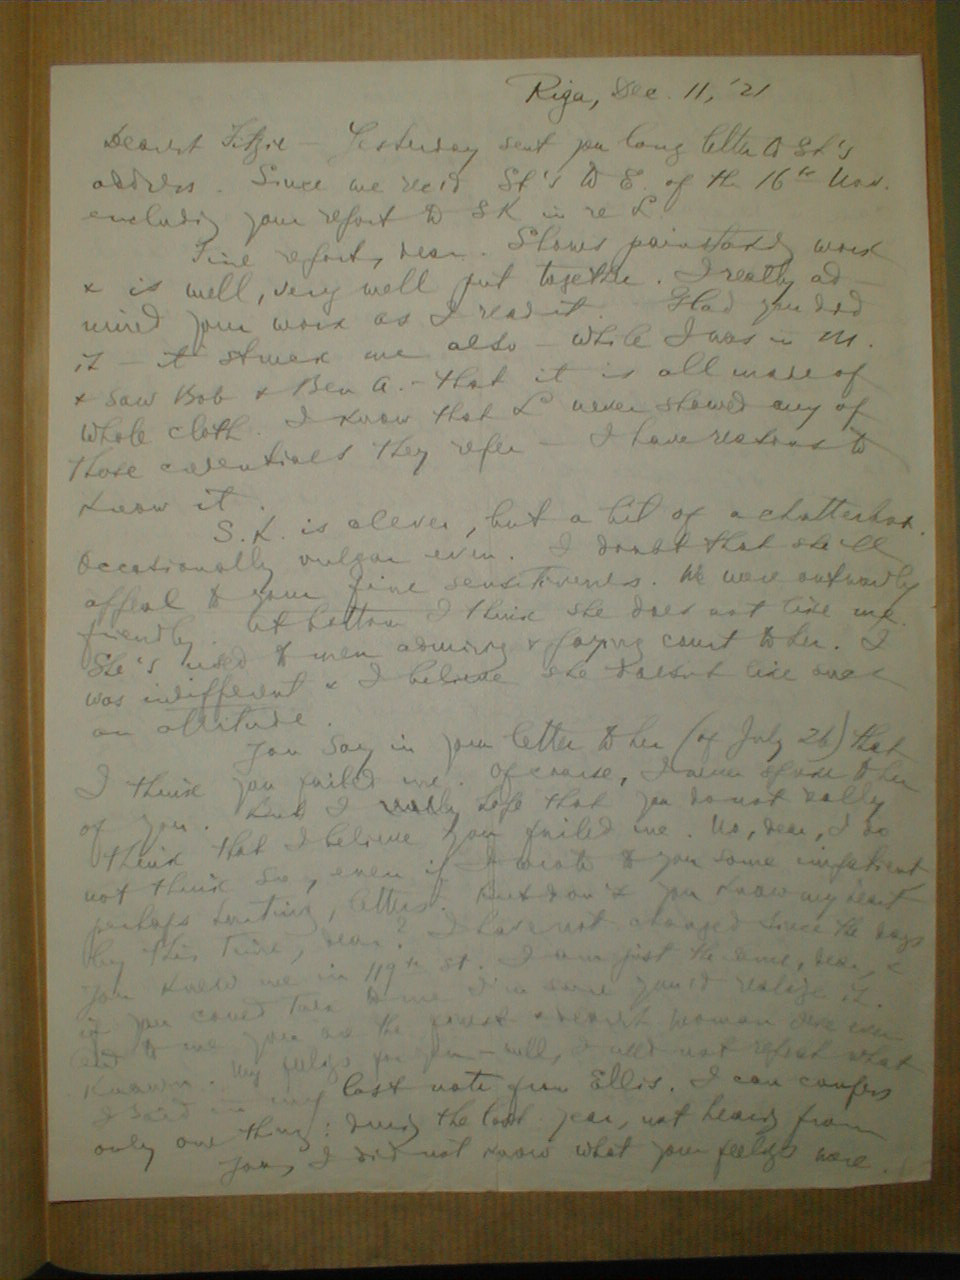 Riga, Dec. 11, '21
Dearest Fitzie — Yesterday sent you long letter to St's
address. Since we rec'd St's to E. of the 16th Nov.
including your report to SK in re L
Fine report, dear. Shows painstaking work
& is well, very well put together. I really ad-
mired your work as I read it. Glad you did
it — it struck me also — while I was in M.
& saw Bob & Ben A. — that it is all made of
whole cloth. I know that L never showed any of
those credentials they refer — I have reasons to
know it.
S.K. is clever, but a bit of a chatterbox.
Occasionally vulgar even. I doubt that she'll
appeal to your fine sensitiveness. We were outwardly
friendly. At bottom I think she does not like me.
She's used to men admiring & paying court to her. I
was indifferent & I believe she doesn't like such
an attitude.
You say in your letter to her (of July 26) that
I think you failed me. Of course, I never spoke to her
of you. But I really hope that you do not really
think that I believe you failed me. No, dear, I do
not think so, even if I wrote to you some impatient
perhaps hurting, letters. But don't you know my heart
by this time, dear? I have not changed since the days
you knew me in 119th St. I am just the same, dear, &
if you could talk to me I'm sure you'd realize it.
And to me you are the finest & dearest woman I've ever
known. My feelings for you — well, I need not repeat what
I said in my last note from Ellis. I can confess
only one thing: during the last year, not hearing from
you, I did not know what your feelings were.